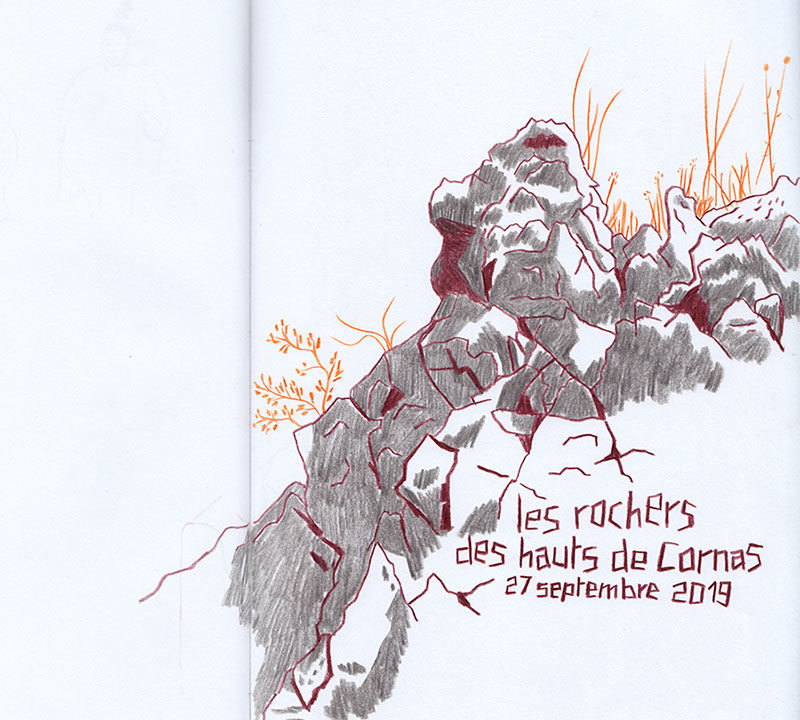 les rochers
des hauts de Cornas
27 septembre 2019